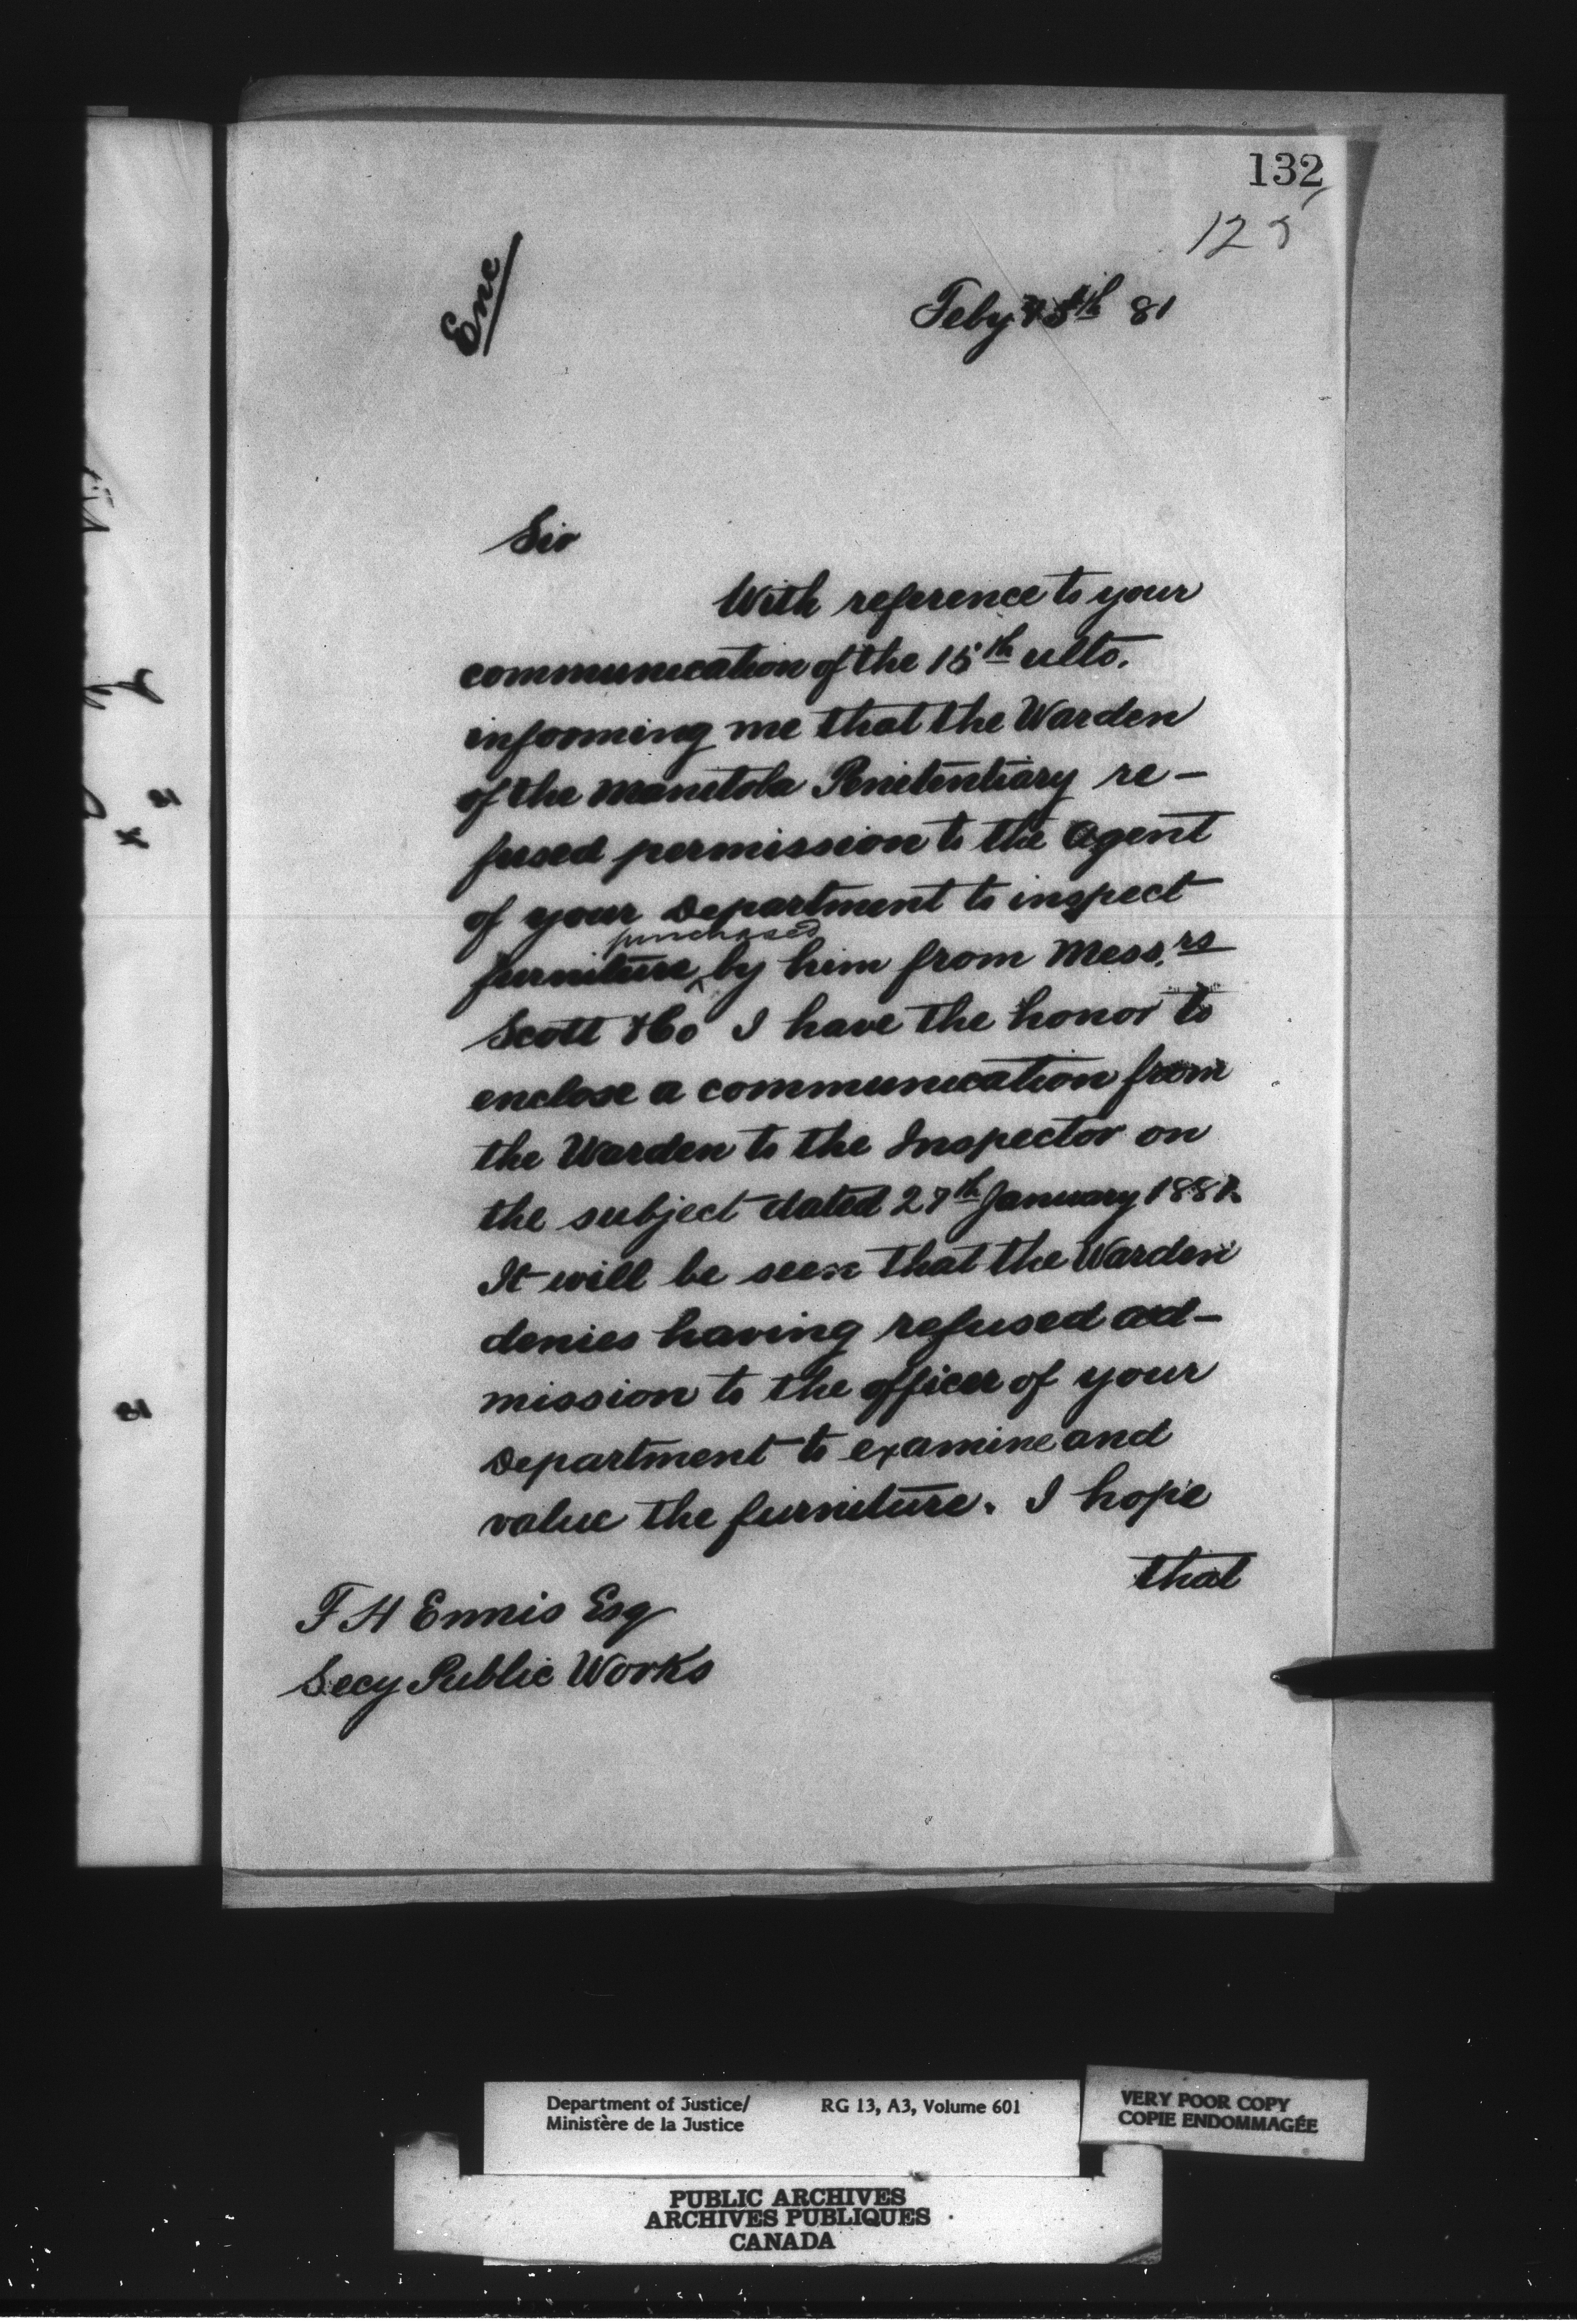 132
125
Enc
Feby 15th 81
Sir
With reference to your
communication of the 15th ulto.
informing me that the Warden
of the Manitoba Penitentiary re-
fused permission to the Agent
of your Department to inspect
furniture purchased by him from Mess.rs
Scott & Co I have the honor to
enclose a communication from
the Warden to the Inspector on
the subject dated 27th January 1881.
It will be seen that the Warden
denies having refused ad-
mission to the officer of your
Department to examine and
value the furniture. I hope
that
F H Ennis Esq
Secy Public Works
Department of Justice/
Ministère de la Justice
RG 13, A3, Volume 601
VERY POOR COPY
COPIE ENDOMMAGÉE
PUBLIC ARCHIVES
ARCHIVES PUBLIQUES
CANADA